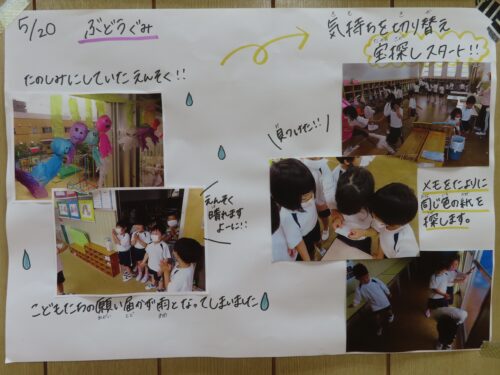 5/20 ぶどうぐみ
たのしみにしていたえんそく!!
えんそく
晴れます
よーに!!
こどもたちの願い届かず雨となってしまいました
気持ちを切り替え
宝探しスタート!!
見つけた!!
メモをたよりに
同じ色の紙を
探します。